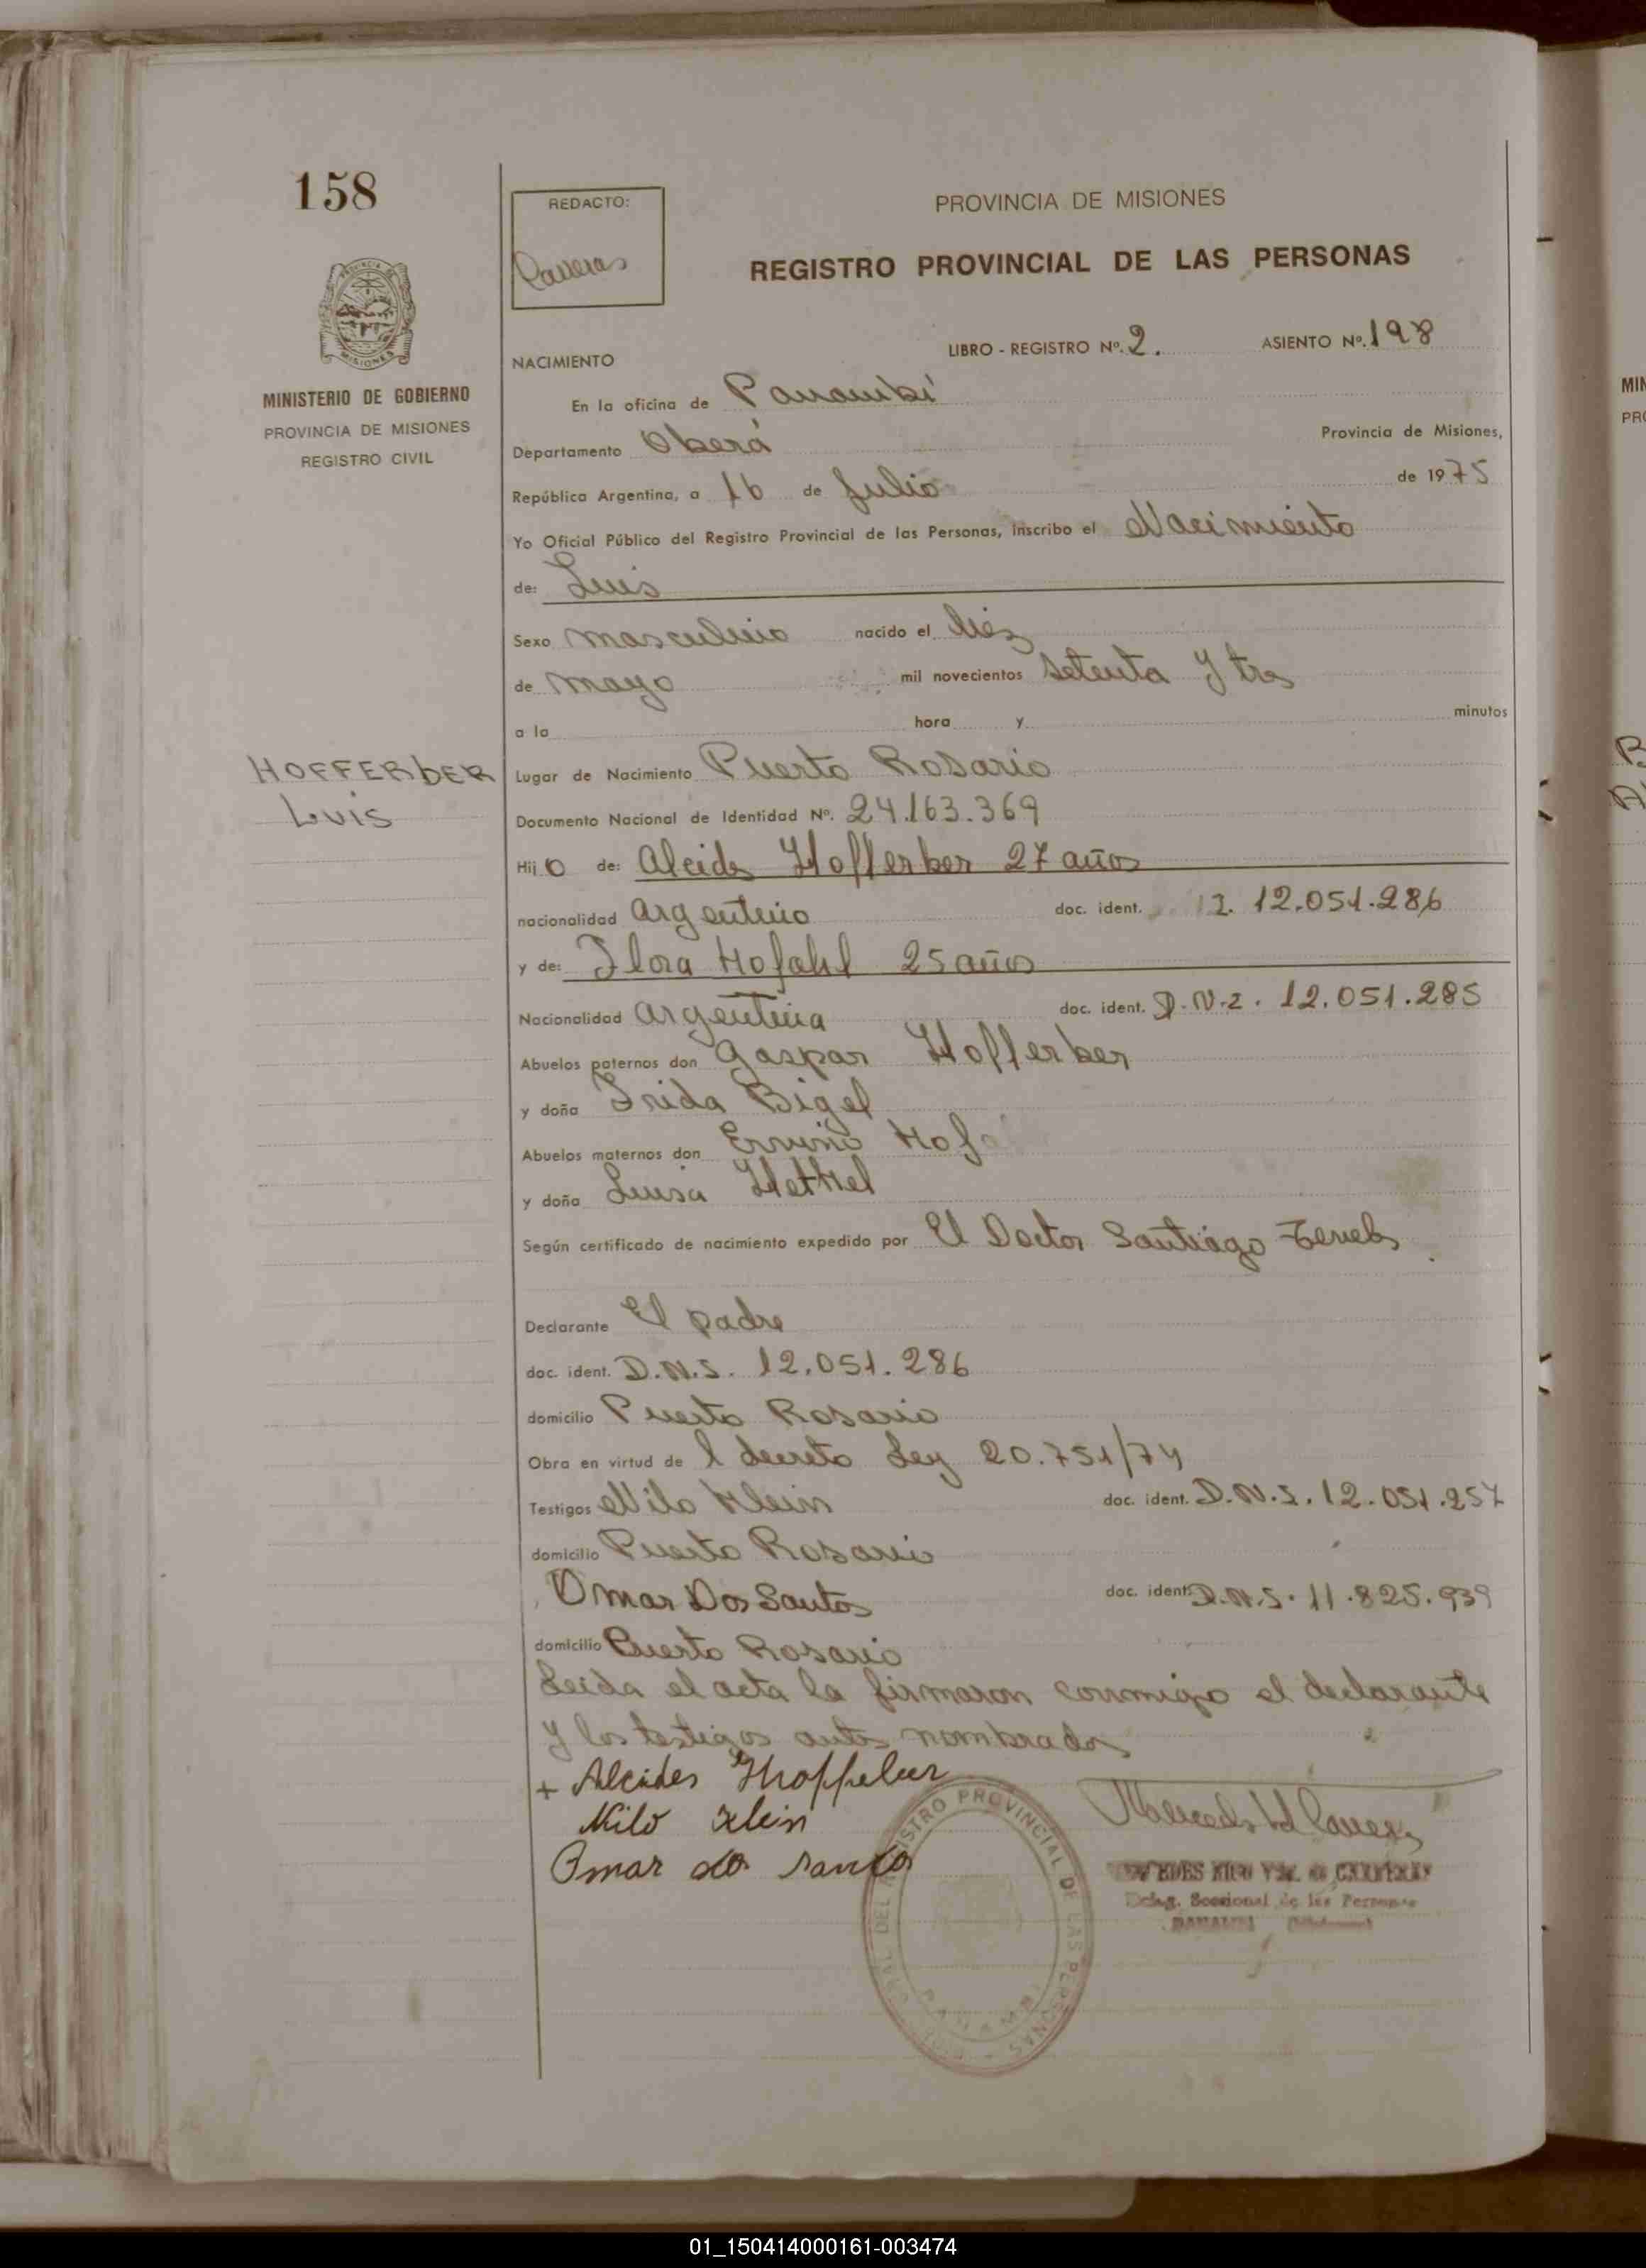 158
REDACTO:
Carreras
PROVINCIA DE MISIONES
REGISTRO PROVINCIAL DE LAS PERSONAS
LIBRO - REGISTRO Nº. 2. ASIENTO Nº. 198
NACIMIENTO
MINISTERIO DE GOBIERNO
PROVINCIA DE MISIONES
REGISTRO CIVIL
En la oficina de Panambí
Departamento Oberá Provincia de Misiones,
República Argentina, a 16 de Julio de 1975
Yo Oficial Público del Registro Provincial de las Personas, inscribo el Nacimiento
de: Luis
Sexo masculino nacido el diez
de mayo mil novecientos setenta y tres
a la hora y minutos
HOFFERBER
Luis
Lugar de Nacimiento Puerto Rosario
Documento Nacional de Identidad Nº. 24.163.369
Hijo de: Alcides Hofferber 27 años
nacionalidad argentino doc. ident. 12.051.286
y de: Flora Hofahl 25 años
Nacionalidad argentina doc. ident. D.N.I. 12.051.285
Abuelos paternos don Gaspar Hofferber
y doña Frida Bigel
Abuelos maternos don Ervino
y doña Luisa
Según certificado de nacimiento expedido por El Doctor Santiago
Declarante El padre
doc. ident. D.N.I. 12.051.286
domicilio Puerto Rosario
Obra en virtud de l decreto Ley 20.751/74
Testigos Nilo Klein doc. ident. D.N.I. 12.051.257
domicilio Puerto Rosario
Omar Dos Santos doc. ident. D.N.I. 11.825.939
domicilio Puerto Rosario
Leída el acta la firmaron conmigo el declarante
y los testigos antes nombrados
+ Alcides Hofferber
Nilo Klein
Omar dos Santos
REGISTRO PROVINCIAL DE LAS PERSONAS
PANAMBI
Deleg. Seccional de las Personas
01_150414000161-003474